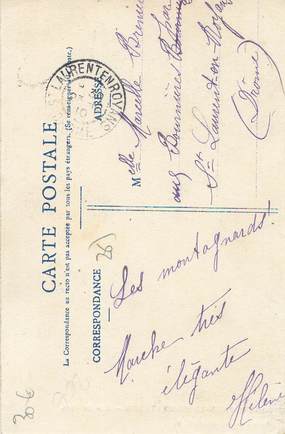 CARTE POSTALE
La Correspondance au recto n'est pas acceptée par tous les pays étrangers. (Se renseigner à la Poste).
CORRESPONDANCE
ADRESSE
Les montagnards
Marche très
élégante
Hélène
ST LAURENT EN ROYANS
Melle Marcelle
aux
St Laurent en Royans
(Drôme)